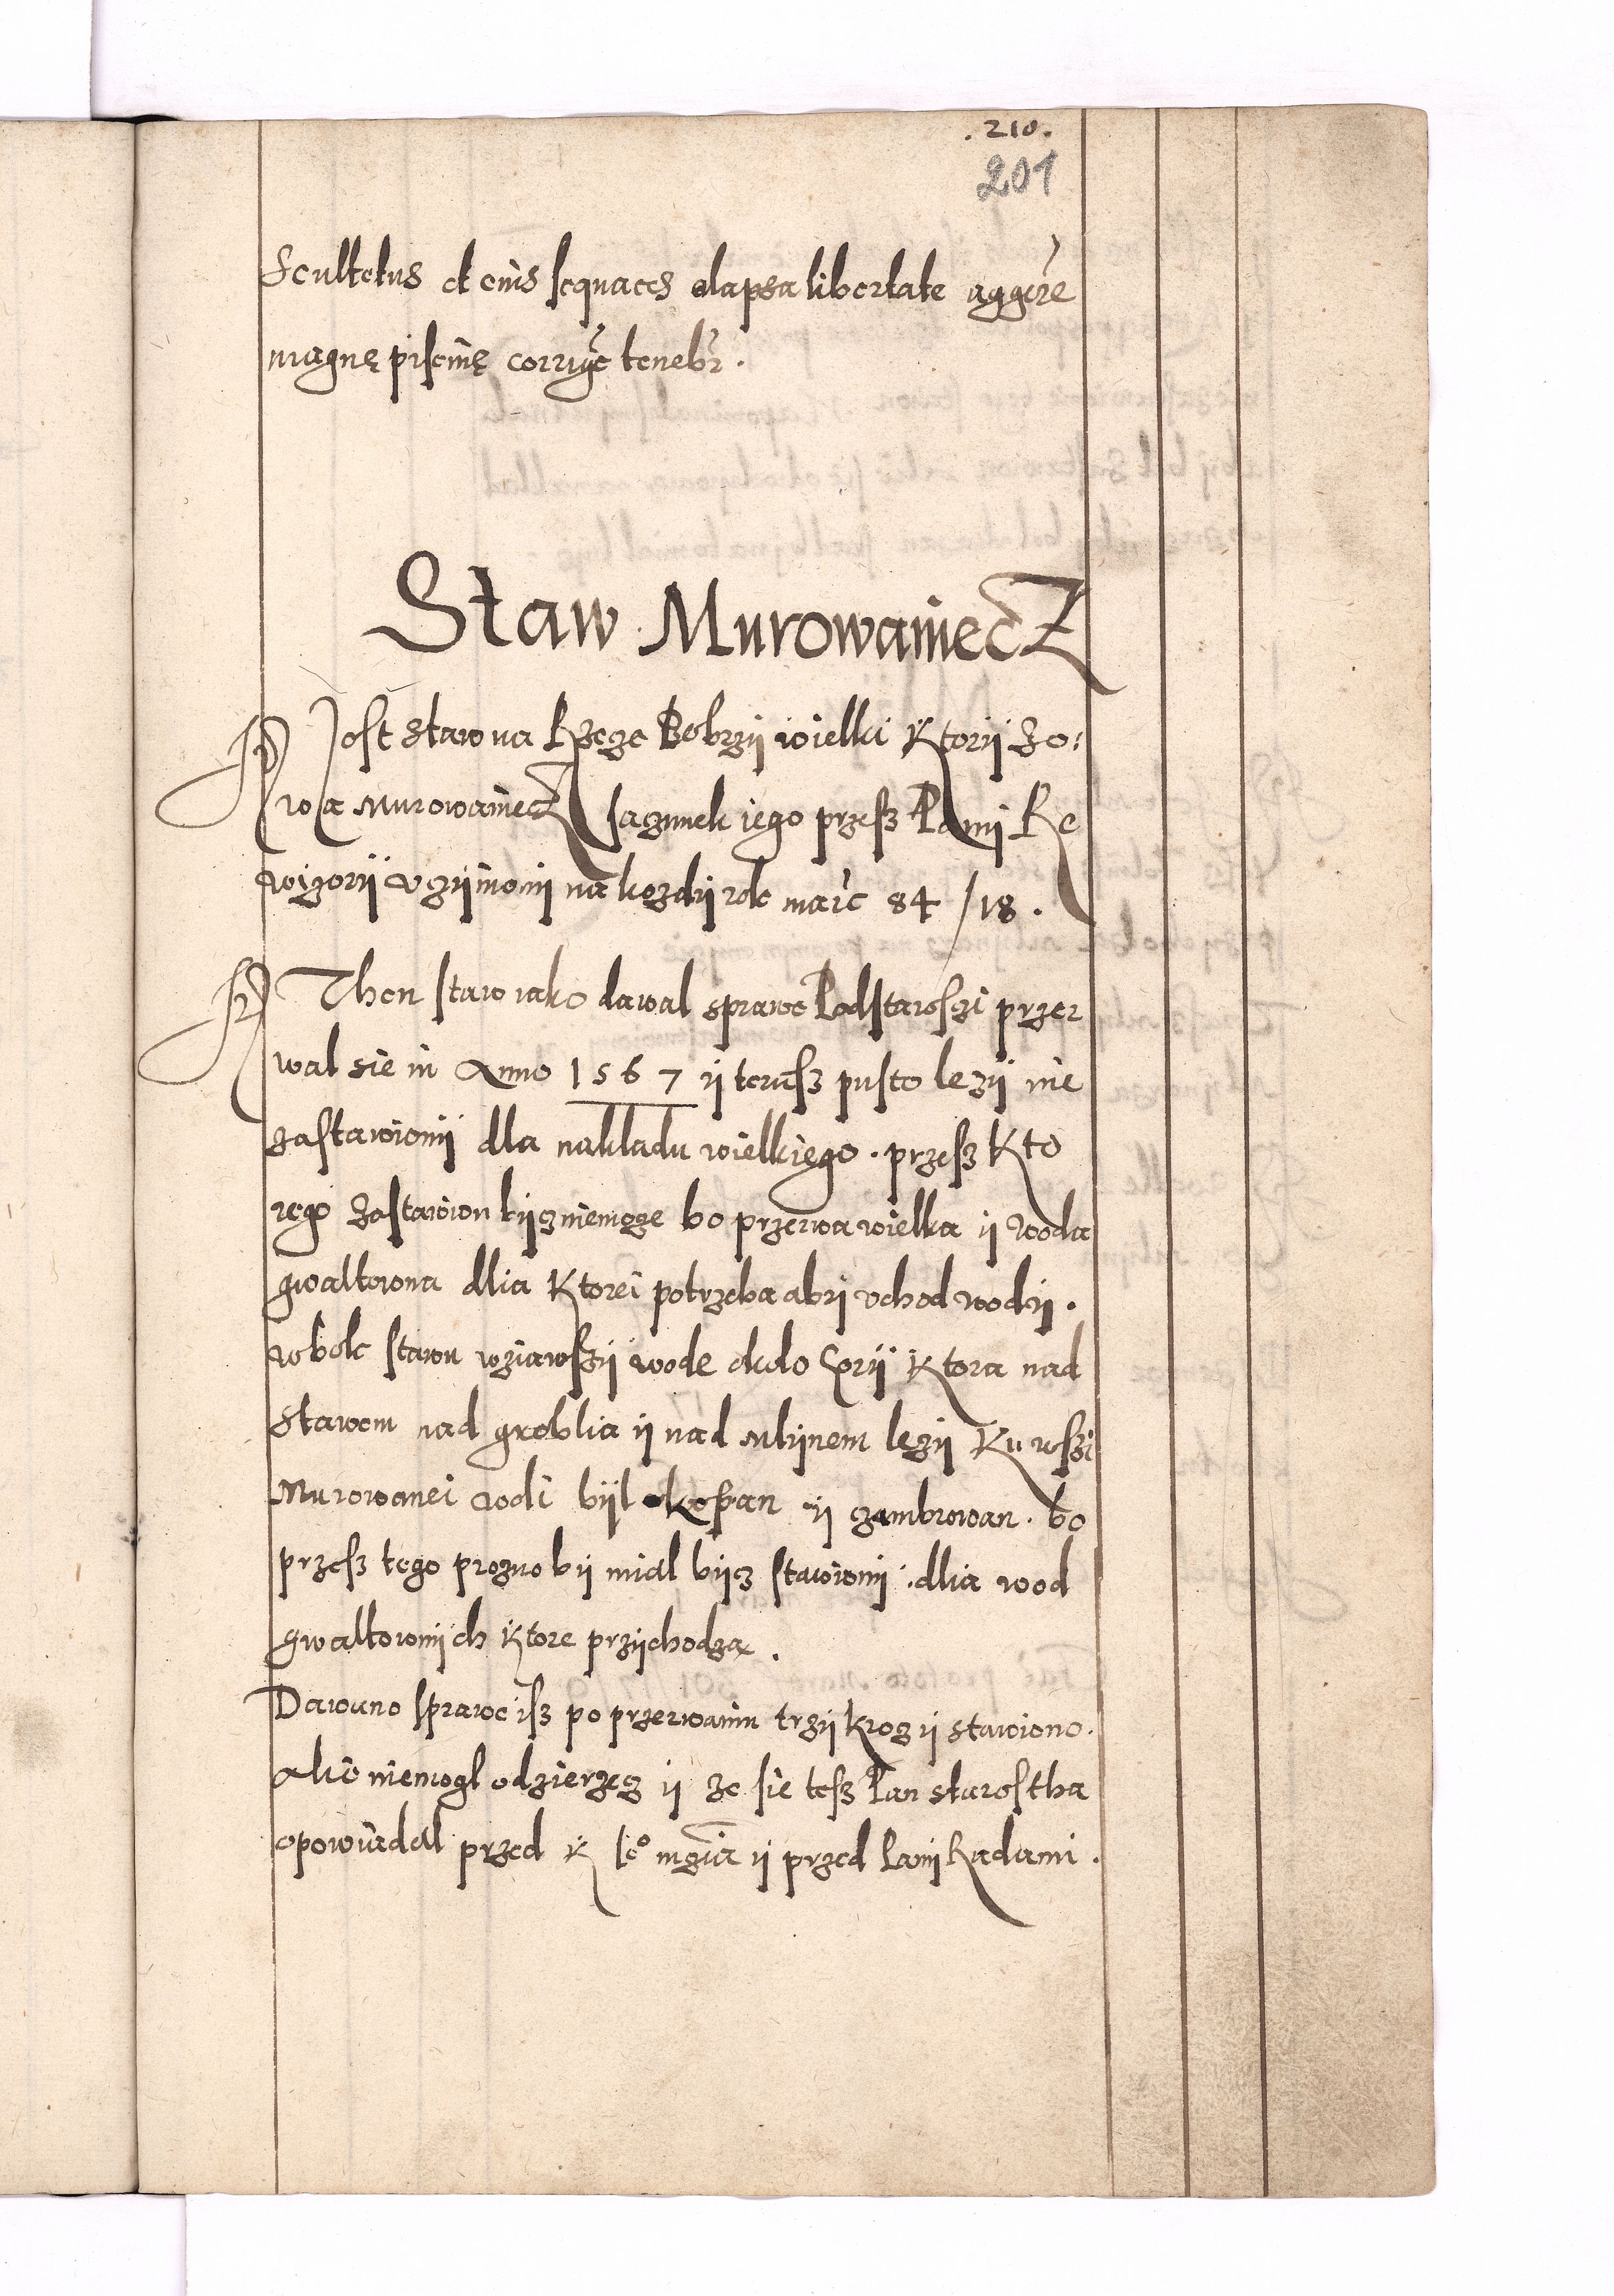 .210.
201
Scultetus et eius sequaces elapsa libertate aggere
magnę piscinę corrige teneb̃r.
Staw MurowaniecZ
Jest staw na Rzece Bobrzÿ wielki Ktorÿ Zo:
wa MurowaniecZ sacunek iego przesz Panÿ Re
wizorÿ vczÿnionÿ na kozdÿ rok marc 84 /18.
Then staw iako dawal sprawe Podstaroszi przer
wal sie in Anno 1567 ÿ teras pusto lezÿ nie
zastawionÿ dla nakladu wielkiego. przesz Kto
rego zastawion bÿcz niemoze bo przerwa wielka ÿ woda
gwaltowna dlia Ktorei potrzeba abÿ vchod wodÿ.
wbok stawu wziawszÿ wode okolo Gorÿ Ktora nad
stawem nad groblia ÿ nad mlÿnem lezÿ Ku wszi
Murowanei wodi bÿl okopan ÿ czambrowan. bo
przesz tego prozno bÿ mial bÿcz stawionÿ. dlia wod
gwaltownÿch Ktore przÿchodza.
Dawano sprawe isz po przerwaniu trzÿ krocz ÿ stawiono.
alie niemogl odzierzecz ÿ ze sie tesz Pan starostha
opowiadal przed K Je° mczia ÿ przed Panÿ Radami.